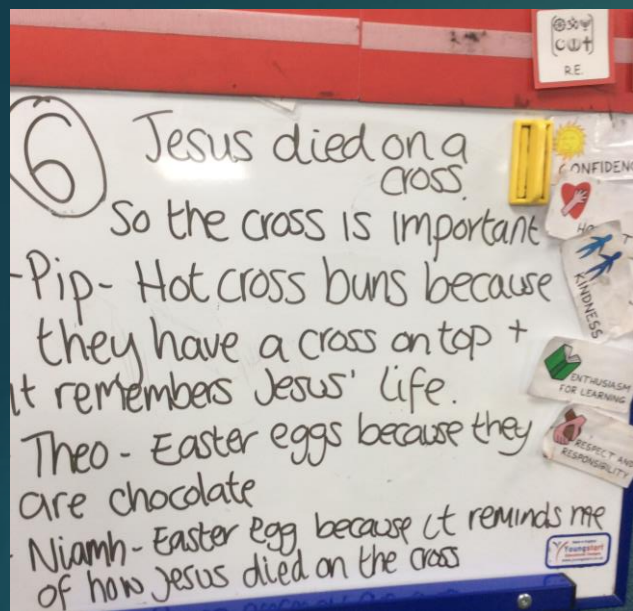 R.E.
6
Jesus died on a
cross.
So the cross is important
- Pip - Hot cross buns because
they have a cross on top +
it remembers Jesus' life.
Theo - Easter eggs because they
are chocolate
- Niamh - Easter egg because it reminds me
of how Jesus died on the cross
CONFIDENC
KINDNESS
ENTHUSIASM
FOR LEARNING
RESPECT AND
RESPONSIBILITY
Youngstart